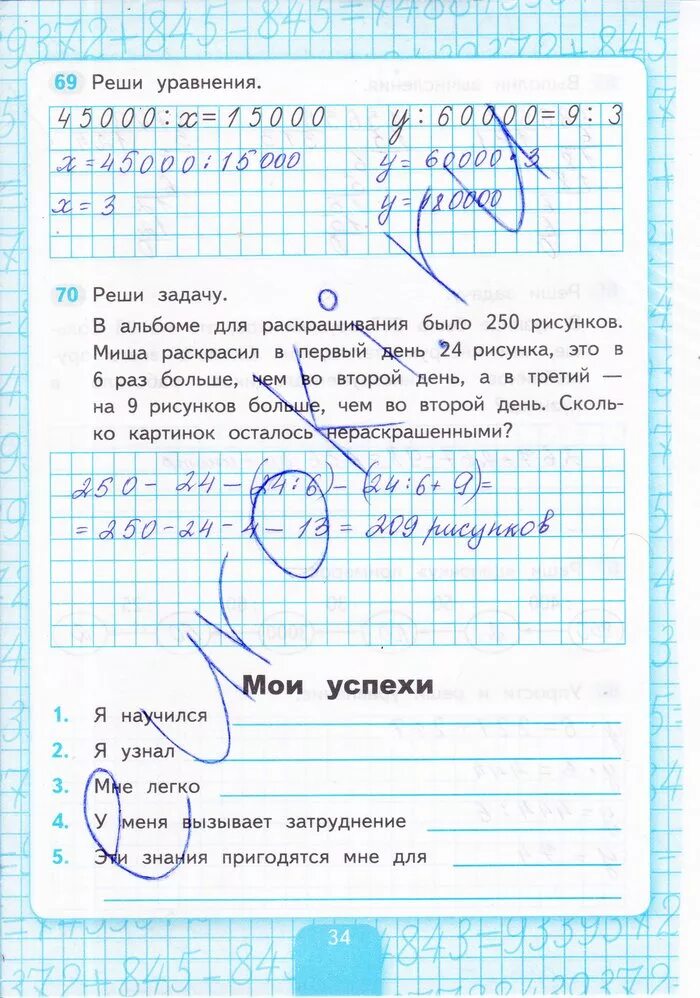 9372+845-845=
69 Реши уравнения.
45000:x=15000 y:60000=9:3
x=45000:15000 y=60000·3
x=3 y=180000
70 Реши задачу.
В альбоме для раскрашивания было 250 рисунков.
Миша раскрасил в первый день 24 рисунка, это в
6 раз больше, чем во второй день, а в третий —
на 9 рисунков больше, чем во второй день. Сколь-
ко картинок осталось нераскрашенными?
250-24-(24:6)-(24:6+9)=
=250-24-4-13=209 рисунков
Мои успехи
1. Я научился
2. Я узнал
3. Мне легко
4. У меня вызывает затруднение
5. Эти знания пригодятся мне для
34